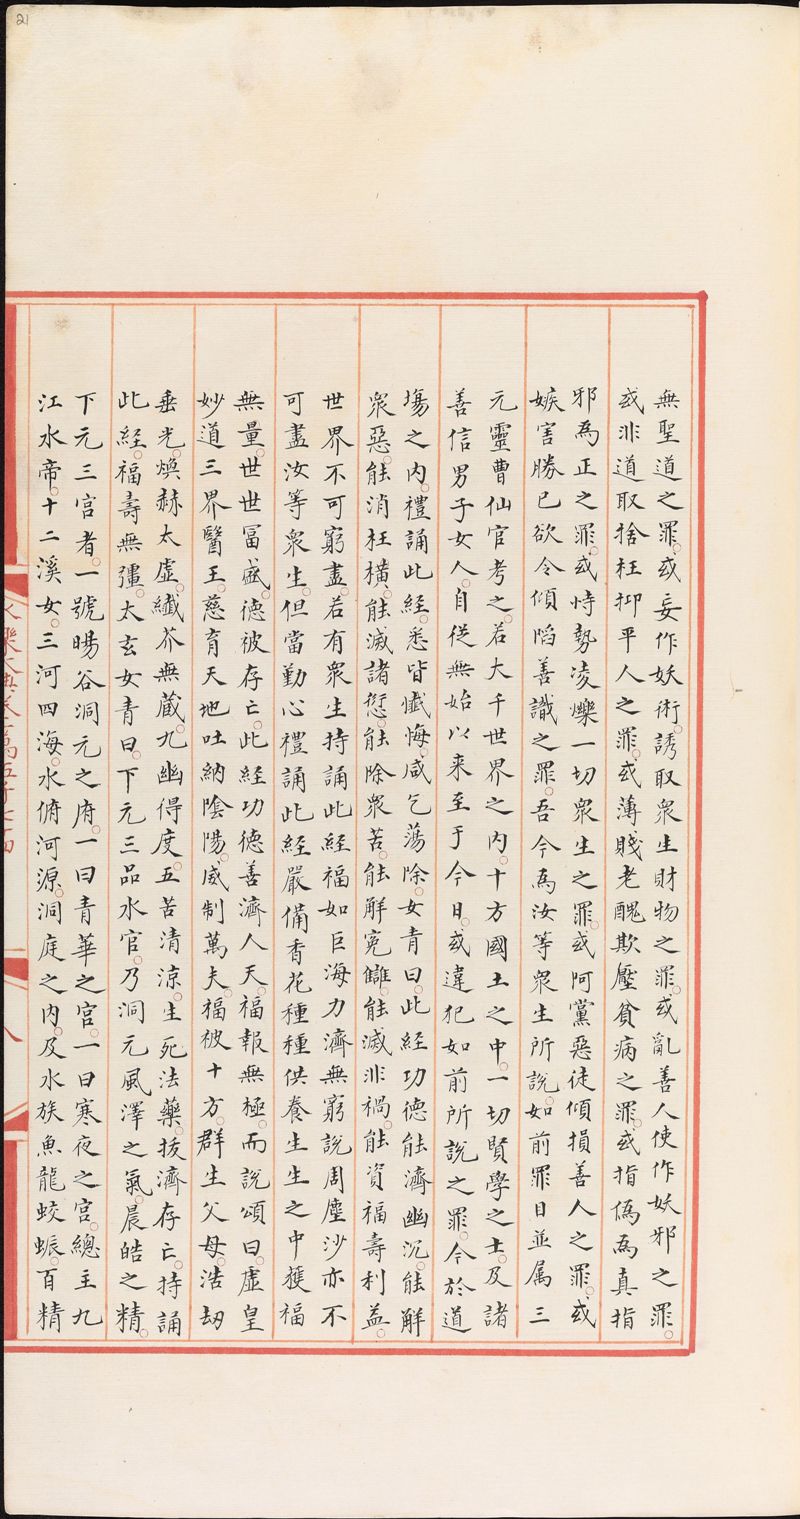 21
無聖道之罪。或妄作妖術。誘取衆生財物之罪。或亂善人使作妖邪之罪。
或非道取捨枉抑平人之罪。或薄賤老醜欺壓貧病之罪。或指僞爲真指
邪爲正之罪。或恃勢凌爍一切衆生之罪。或阿黨惡徒傾損善人之罪。或
嫉害勝已欲令傾陷善識之罪。吾今爲汝等衆生所說。如前罪目並属三
元靈曹仙官考之。若大千世界之内。十方國土之中。一切賢學之士。及諸
善信男子女人。自從無始以来至于今日。或違犯如前所說之罪。今於道
塲之内。禮誦此經。悉皆懺悔。咸乞蕩除。女青曰。此經功德能濟幽沉。能解
衆惡。能消枉橫。能滅諸愆。能除衆苦。能解寃讎。能滅非禍。能資福壽利益。
世界不可窮盡。若有衆生持誦此經福如巨海力濟無窮說周塵沙亦不
可盡汝等衆生。但當勤心禮誦此經嚴備香花種種供養生生之中獲福
無量。世世冨盛。德被存亡。此經功德善濟人天。福報無極。而說頌曰。虛皇
妙道三界醫王。慈育天地吐納陰陽。威制萬夫。福被十方。群生父母。浩劫
垂光。煥赫太虛。纖芥無蔵。九幽得度。五苦清涼。生死法藥。拔濟存亡。持誦
此經。福壽無彊。太玄女青曰。下元三品水官。乃洞元風澤之氣。晨皓之精。
下元三官者。一號暘谷洞元之府。一曰青華之宮。一曰寒夜之宮。總主九
江水帝。十二溪女。三河四海。水俯河源。洞庭之内。及水族魚龍蛟蜃。百精
永樂大典卷二萬五千七十四
八